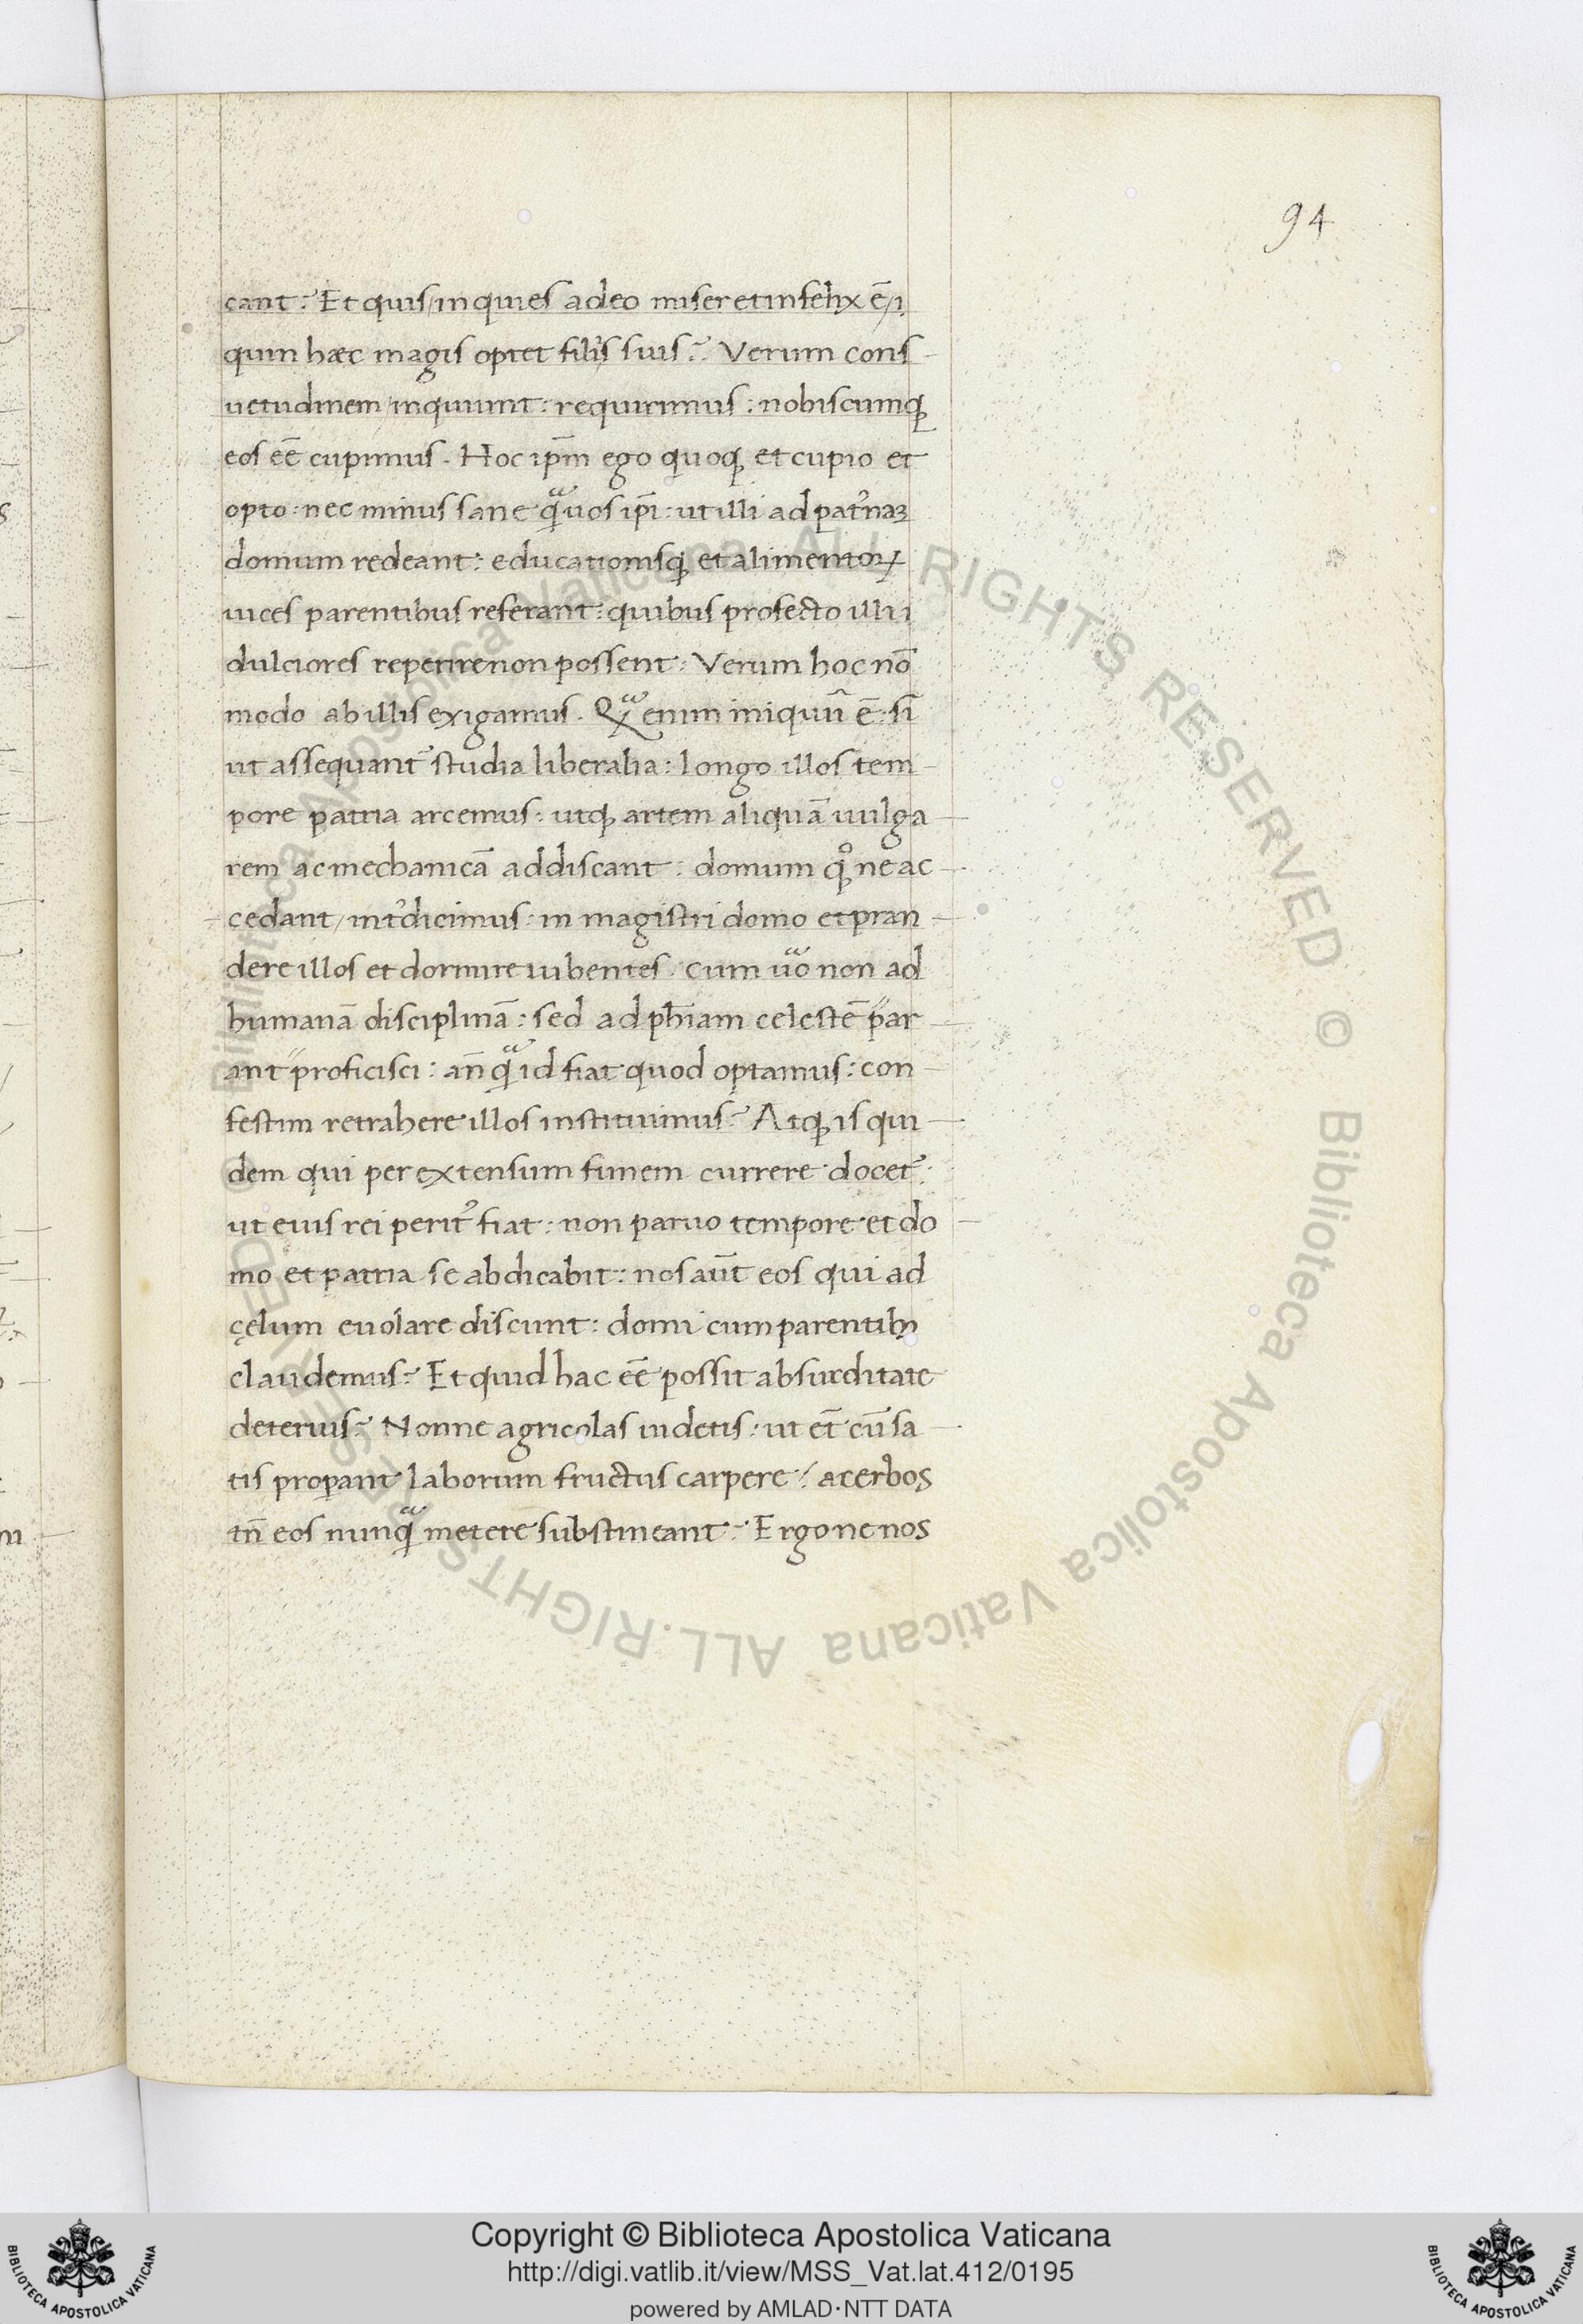 94
cant? Et quis/ inquies adeo miser et infelix ē/ i
quin hæc magis optet filiis suis? Verum cons
uetudinem/ inquiunt: requirimus: nobiscumqꝫ
eos eē cupimus. Hoc ip̄m ego quoqꝫ et cupio et
opto: nec minus sane qͣ̃ uos ip̄i: ut illi ad pat̓naꝫ
domum redeant: educationisqꝫ et alimentoꝝ
uices parentibus referant: quibus profecto illi i
dulciores reperire non possent: Verum hoc nō
modo ab illis exigamus. Qͣ̃ enim iniquū ē: si
ut assequant᷑ studia liberalia: longo illos tem
pore patria arcemus: utqꝫ artem aliquā uulga
rem ac mechanicā addiscant: domum qꝫ̊ ne ac
cedant/ int̓dicimus: in magistri domo et pran
dere illos et dormire iubentes. cum uͦo non ad
humanā disciplinā: sed ad ph̄iam celestē par
ant proficisci: an̄qͣ̃ id fiat quod optamus: con
festim retrahere illos instituimus? Atqꝫ is qui
dem qui per extensum funem currere docet᷑:
ut eius rei perit᾽ fiat: non paruo tempore et do
mo et patria se abdicabit: nos aūt eos qui ad
cęlum euolare discunt: domi cum parentibꝫ
claudemus? Et quid hac eē possit absurditate
deterius? Nonne agricolas uidetis: ut et̄ cū sa
tis properant laborum fructus carpere: acerbos
tn̄ eos nunqͣ̃ metere substineant? Ergo ne nos
Biblioteca Apostolica Vaticana ALL RIGHTS RESERVED © Biblioteca Apostolica Vaticana ALL RIGHTS RESERVED ©
Copyright © Biblioteca Apostolica Vaticana
http://digi.vatlib.it/view/MSS_Vat.lat.412/0195
powered by AMLAD·NTT DATA
BIBLIOTECA APOSTOLICA VATICANA
BIBLIOTECA APOSTOLICA VATICANA